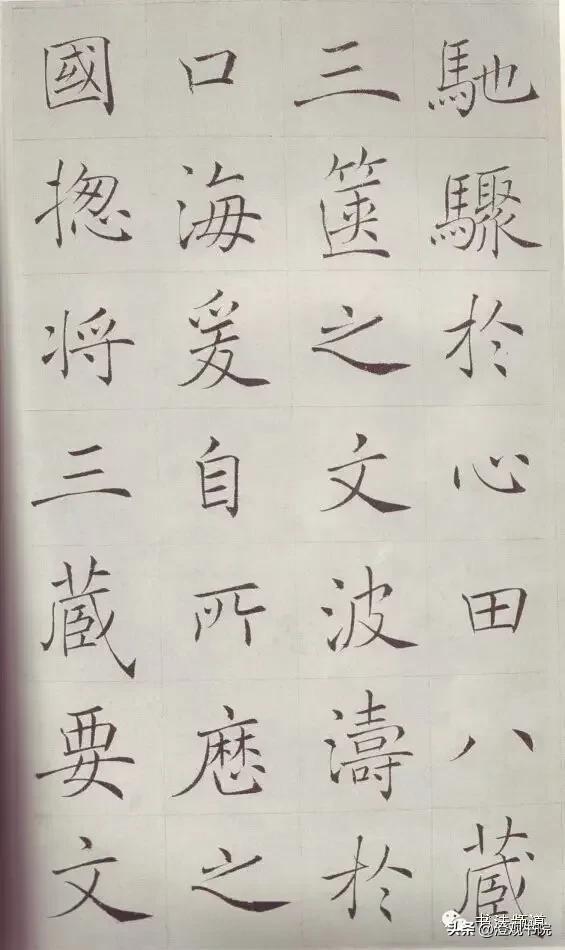 馳驟於心田八藏
三箧之文波濤於
口海爰自所歷之
國揔將三藏要文
书法频道
头条@澄观书院